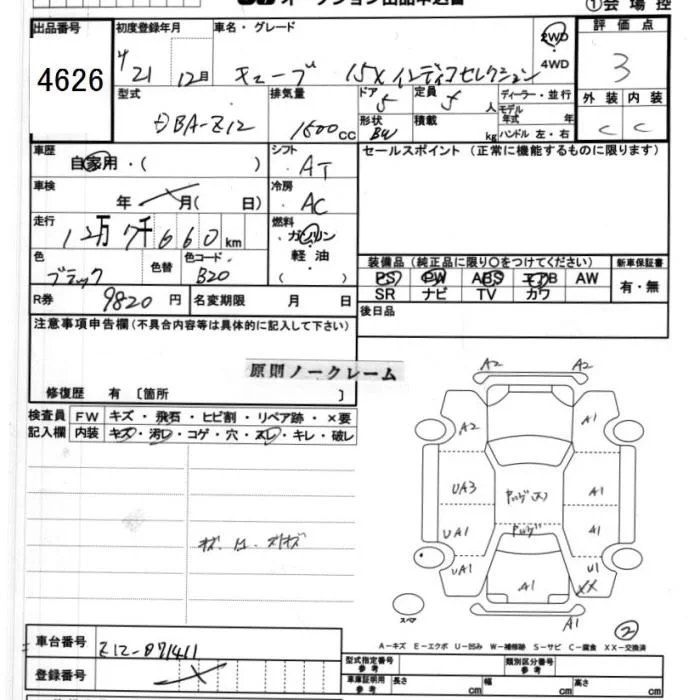 オークション出品申込書
①会場控
出品番号
4626
初度登録年月
H21 12月
車名・グレード
キューブ 15X インディゴセレクション
2WD
4WD
評価点
3
外装 内装
C C
型式
DBA-Z12
排気量
1500cc
ドア
5
定員
5人
ディーラー・並行
モデル年式 年
形状
BW
積載 kg
ハンドル 左・右
車歴
自家用・( )
シフト
AT
セールスポイント (正常に機能するものに限ります)
車検
年 月( 日)
冷房
AC
走行
12万7千660km
燃料
ガソリン
軽油
( )
色
ブラック
色替
色コード
B20
装備品 (純正品に限り○をつけてください)
新車保証書
PS PW ABS エアB AW
有・無
SR ナビ TV カワ
R券
9820円
名変期限 月 日
後日品
注意事項申告欄 (不具合内容等は具体的に記入して下さい)
原則ノークレーム
修復歴 有 〔箇所 〕
検査員記入欄
FW キズ・飛石・ヒビ割・リペア跡・×要
内装 キズ・汚レ・コゲ・穴・スレ・キレ・破レ
A2 A2
A2 A1
UA3 A1
UA1 A1
UA1 U1
XX
A1
A1
スペア
②
A-キズ E-エクボ U-凹み W-補修跡 S-サビ C-腐食 XX-交換済
車台番号
Z12-071411
登録番号
型式指定番号
参考
類別区分番号
参考
車庫証明用
参考
長さ cm 幅 cm 高さ cm